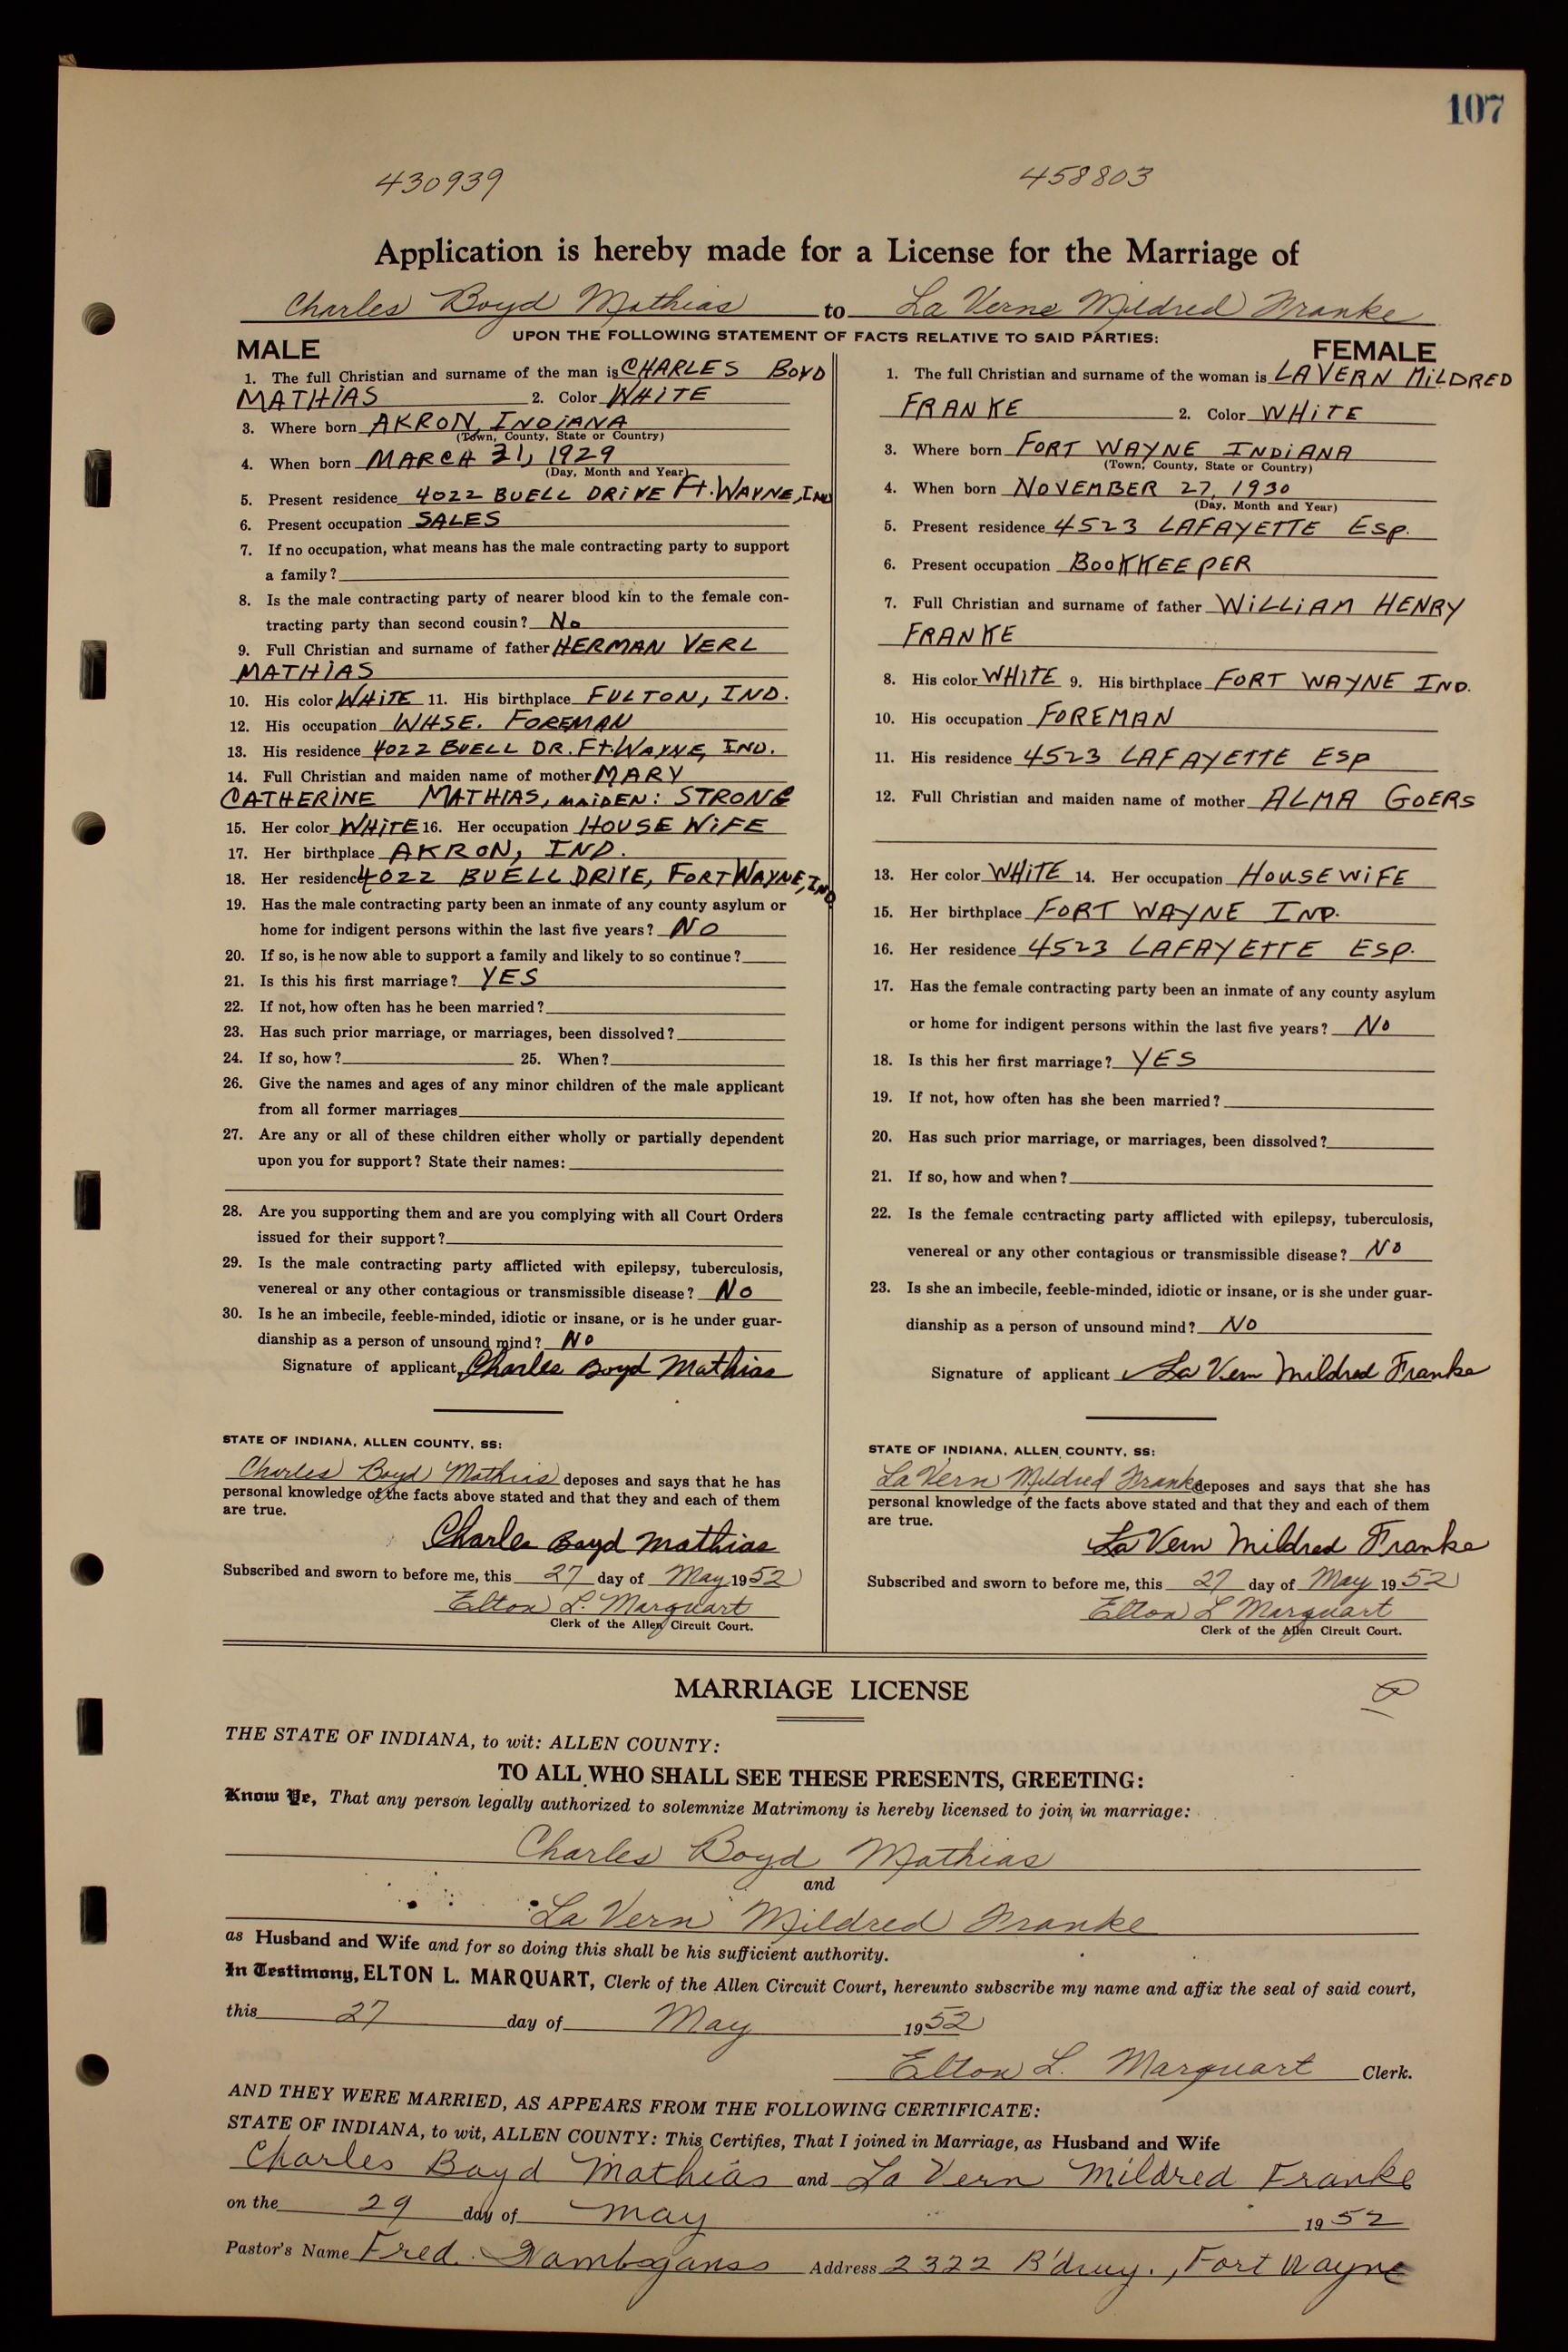 107
430939 458803
Application is hereby made for a License for the Marriage of
Charles Boyd Mathias to La Verne Mildred Franke
UPON THE FOLLOWING STATEMENT OF FACTS RELATIVE TO SAID PARTIES:
MALE
1. The full Christian and surname of the man is CHARLES BOYD
MATHIAS 2. Color WHITE
3. Where born AKRON, INDIANA
(Town, County, State or Country)
4. When born MARCH 21, 1929
(Day, Month and Year)
5. Present residence 4022 BUELL DRIVE Ft. WAYNE, IND
6. Present occupation SALES
7. If no occupation, what means has the male contracting party to support
a family?
8. Is the male contracting party of nearer blood kin to the female con-
tracting party than second cousin? No
9. Full Christian and surname of father HERMAN VERL
MATHIAS
10. His color WHITE 11. His birthplace FULTON, IND.
12. His occupation WHSE. FOREMAN
13. His residence 4022 BUELL DR. Ft. WAYNE, IND.
14. Full Christian and maiden name of mother MARY
CATHERINE MATHIAS, MAIDEN: STRONG
15. Her color WHITE 16. Her occupation HOUSE WIFE
17. Her birthplace AKRON, IND.
18. Her residence 4022 BUELL DRIVE, FORT WAYNE, IND
19. Has the male contracting party been an inmate of any county asylum or
home for indigent persons within the last five years? NO
20. If so, is he now able to support a family and likely to so continue?
21. Is this his first marriage? YES
22. If not, how often has he been married?
23. Has such prior marriage, or marriages, been dissolved?
24. If so, how? 25. When?
26. Give the names and ages of any minor children of the male applicant
from all former marriages
27. Are any or all of these children either wholly or partially dependent
upon you for support? State their names:
28. Are you supporting them and are you complying with all Court Orders
issued for their support?
29. Is the male contracting party afflicted with epilepsy, tuberculosis,
venereal or any other contagious or transmissible disease? No
30. Is he an imbecile, feeble-minded, idiotic or insane, or is he under guar-
dianship as a person of unsound mind? No
Signature of applicant, Charles Boyd Mathias
STATE OF INDIANA, ALLEN COUNTY, SS:
Charles Boyd Mathias deposes and says that he has
personal knowledge of the facts above stated and that they and each of them
are true.
Charles Boyd Mathias
Subscribed and sworn to before me, this 27 day of May 1952
Elton L. Marquart
Clerk of the Allen Circuit Court.
FEMALE
1. The full Christian and surname of the woman is LAVERN MILDRED
FRANKE 2. Color WHITE
3. Where born FORT WAYNE INDIANA
(Town, County, State or Country)
4. When born NOVEMBER 27, 1930
(Day, Month and Year)
5. Present residence 4523 LAFAYETTE ESP.
6. Present occupation BOOKKEEPER
7. Full Christian and surname of father WILLIAM HENRY
FRANKE
8. His color WHITE 9. His birthplace FORT WAYNE IND.
10. His occupation FOREMAN
11. His residence 4523 LAFAYETTE ESP
12. Full Christian and maiden name of mother ALMA GOERS
13. Her color WHITE 14. Her occupation HOUSEWIFE
15. Her birthplace FORT WAYNE IND.
16. Her residence 4523 LAFAYETTE ESP.
17. Has the female contracting party been an inmate of any county asylum
or home for indigent persons within the last five years? No
18. Is this her first marriage? YES
19. If not, how often has she been married?
20. Has such prior marriage, or marriages, been dissolved?
21. If so, how and when?
22. Is the female contracting party afflicted with epilepsy, tuberculosis,
venereal or any other contagious or transmissible disease? No
23. Is she an imbecile, feeble-minded, idiotic or insane, or is she under guar-
dianship as a person of unsound mind? No
Signature of applicant La Vern Mildred Franke
STATE OF INDIANA, ALLEN COUNTY, SS:
La Vern Mildred Franke deposes and says that she has
personal knowledge of the facts above stated and that they and each of them
are true.
La Vern Mildred Franke
Subscribed and sworn to before me, this 27 day of May 1952
Elton L Marquart
Clerk of the Allen Circuit Court.
MARRIAGE LICENSE
THE STATE OF INDIANA, to wit: ALLEN COUNTY:
TO ALL WHO SHALL SEE THESE PRESENTS, GREETING:
Know Ye, That any person legally authorized to solemnize Matrimony is hereby licensed to join in marriage:
Charles Boyd Mathias
and
La Vern Mildred Franke
as Husband and Wife and for so doing this shall be his sufficient authority.
In Testimony, ELTON L. MARQUART, Clerk of the Allen Circuit Court, hereunto subscribe my name and affix the seal of said court,
this 27 day of May 1952
Elton L. Marquart Clerk.
AND THEY WERE MARRIED, AS APPEARS FROM THE FOLLOWING CERTIFICATE:
STATE OF INDIANA, to wit, ALLEN COUNTY: This Certifies, That I joined in Marriage, as Husband and Wife
Charles Boyd Mathias and La Vern Mildred Franke
on the 29 day of May 1952
Pastor's Name Fred. Address 2322 B'dwy., Fort Wayne